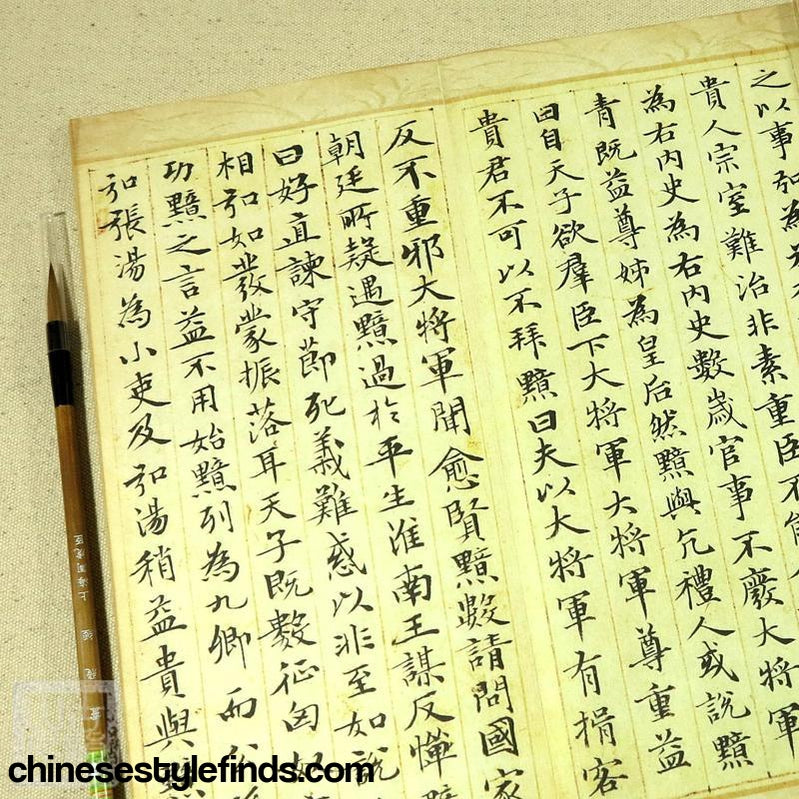 之以事弘為
貴人宗室難治非素重臣不能
為右內史為右內史數歲官事不廢大將軍
青既益尊姊為皇后然黯與亢禮人或說黯
曰自天子欲羣臣下大將軍大將軍尊重益
貴君不可以不拜黯曰夫以大將軍有揖客
反不重邪大將軍聞愈賢黯數請問國家
朝廷所疑遇黯過於平生淮南王謀反憚黯
曰好直諫守節死義難惑以非至如說
相弘如發蒙振落耳天子既數征匈奴
功黯之言益不用始黯列為九卿而公
弘張湯為小吏及弘湯稍益貴與黯
上海周虎臣
chinesestylefinds.com